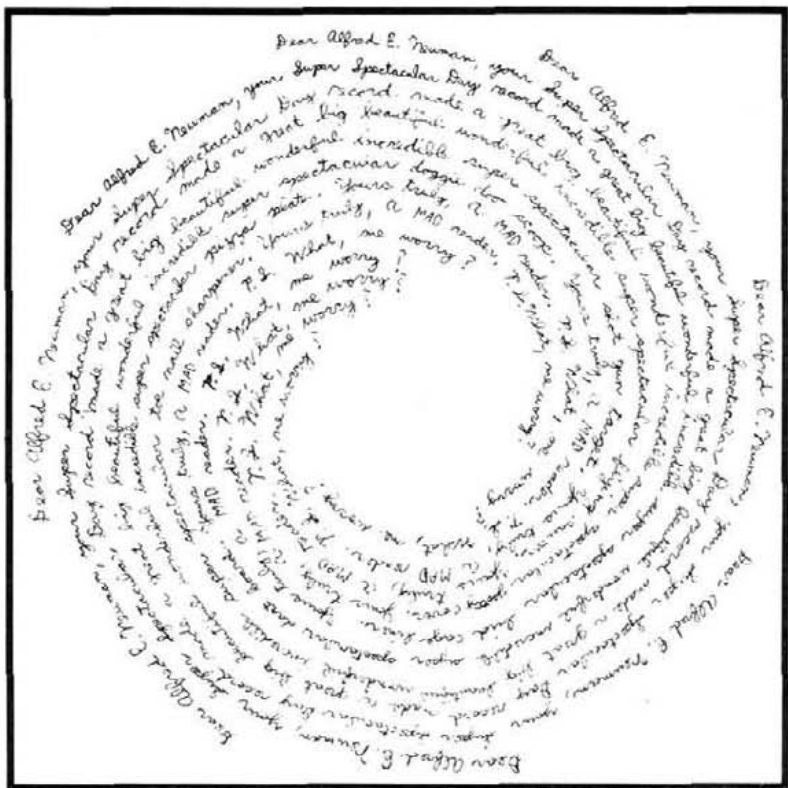 Dear Alfred E. Neuman, your Super Spectacular Day record made a great big beautiful wonderful incredible super spectacular bird cage liner. Yours truly, a MAD reader. P.S. What, me worry?
Dear Alfred E. Neuman, your Super Spectacular Day record made a great big beautiful wonderful incredible super spectacular dart board. Yours truly, a MAD reader. P.S. What, me worry?
Dear Alfred E. Neuman, your Super Spectacular Day record made a great big beautiful wonderful incredible super spectacular toe nail sharpener. Yours truly, a MAD reader. P.S. What, me worry?
Dear Alfred E. Neuman, your Super Spectacular Day record made a great big beautiful wonderful incredible super spectacular pizza plate. Yours truly, a MAD reader. P.S. What, me worry?
Dear Alfred E. Neuman, your Super Spectacular Day record made a great big beautiful wonderful incredible super spectacular doggie doo scoop. Yours truly, a MAD reader. P.S. What, me worry?
Dear Alfred E. Neuman, your Super Spectacular Day record made a great big beautiful wonderful incredible super spectacular skeet gun target. Yours truly, a MAD reader. P.S. What, me worry?
Dear Alfred E. Neuman, your Super Spectacular Day record made a great big beautiful wonderful incredible super spectacular flying saucer. Yours truly, a MAD reader. P.S. What, me worry?
Dear Alfred E. Neuman, your Super Spectacular Day record made a great big beautiful wonderful incredible super spectacular cover. Yours truly, a MAD reader. P.S. What, me worry?